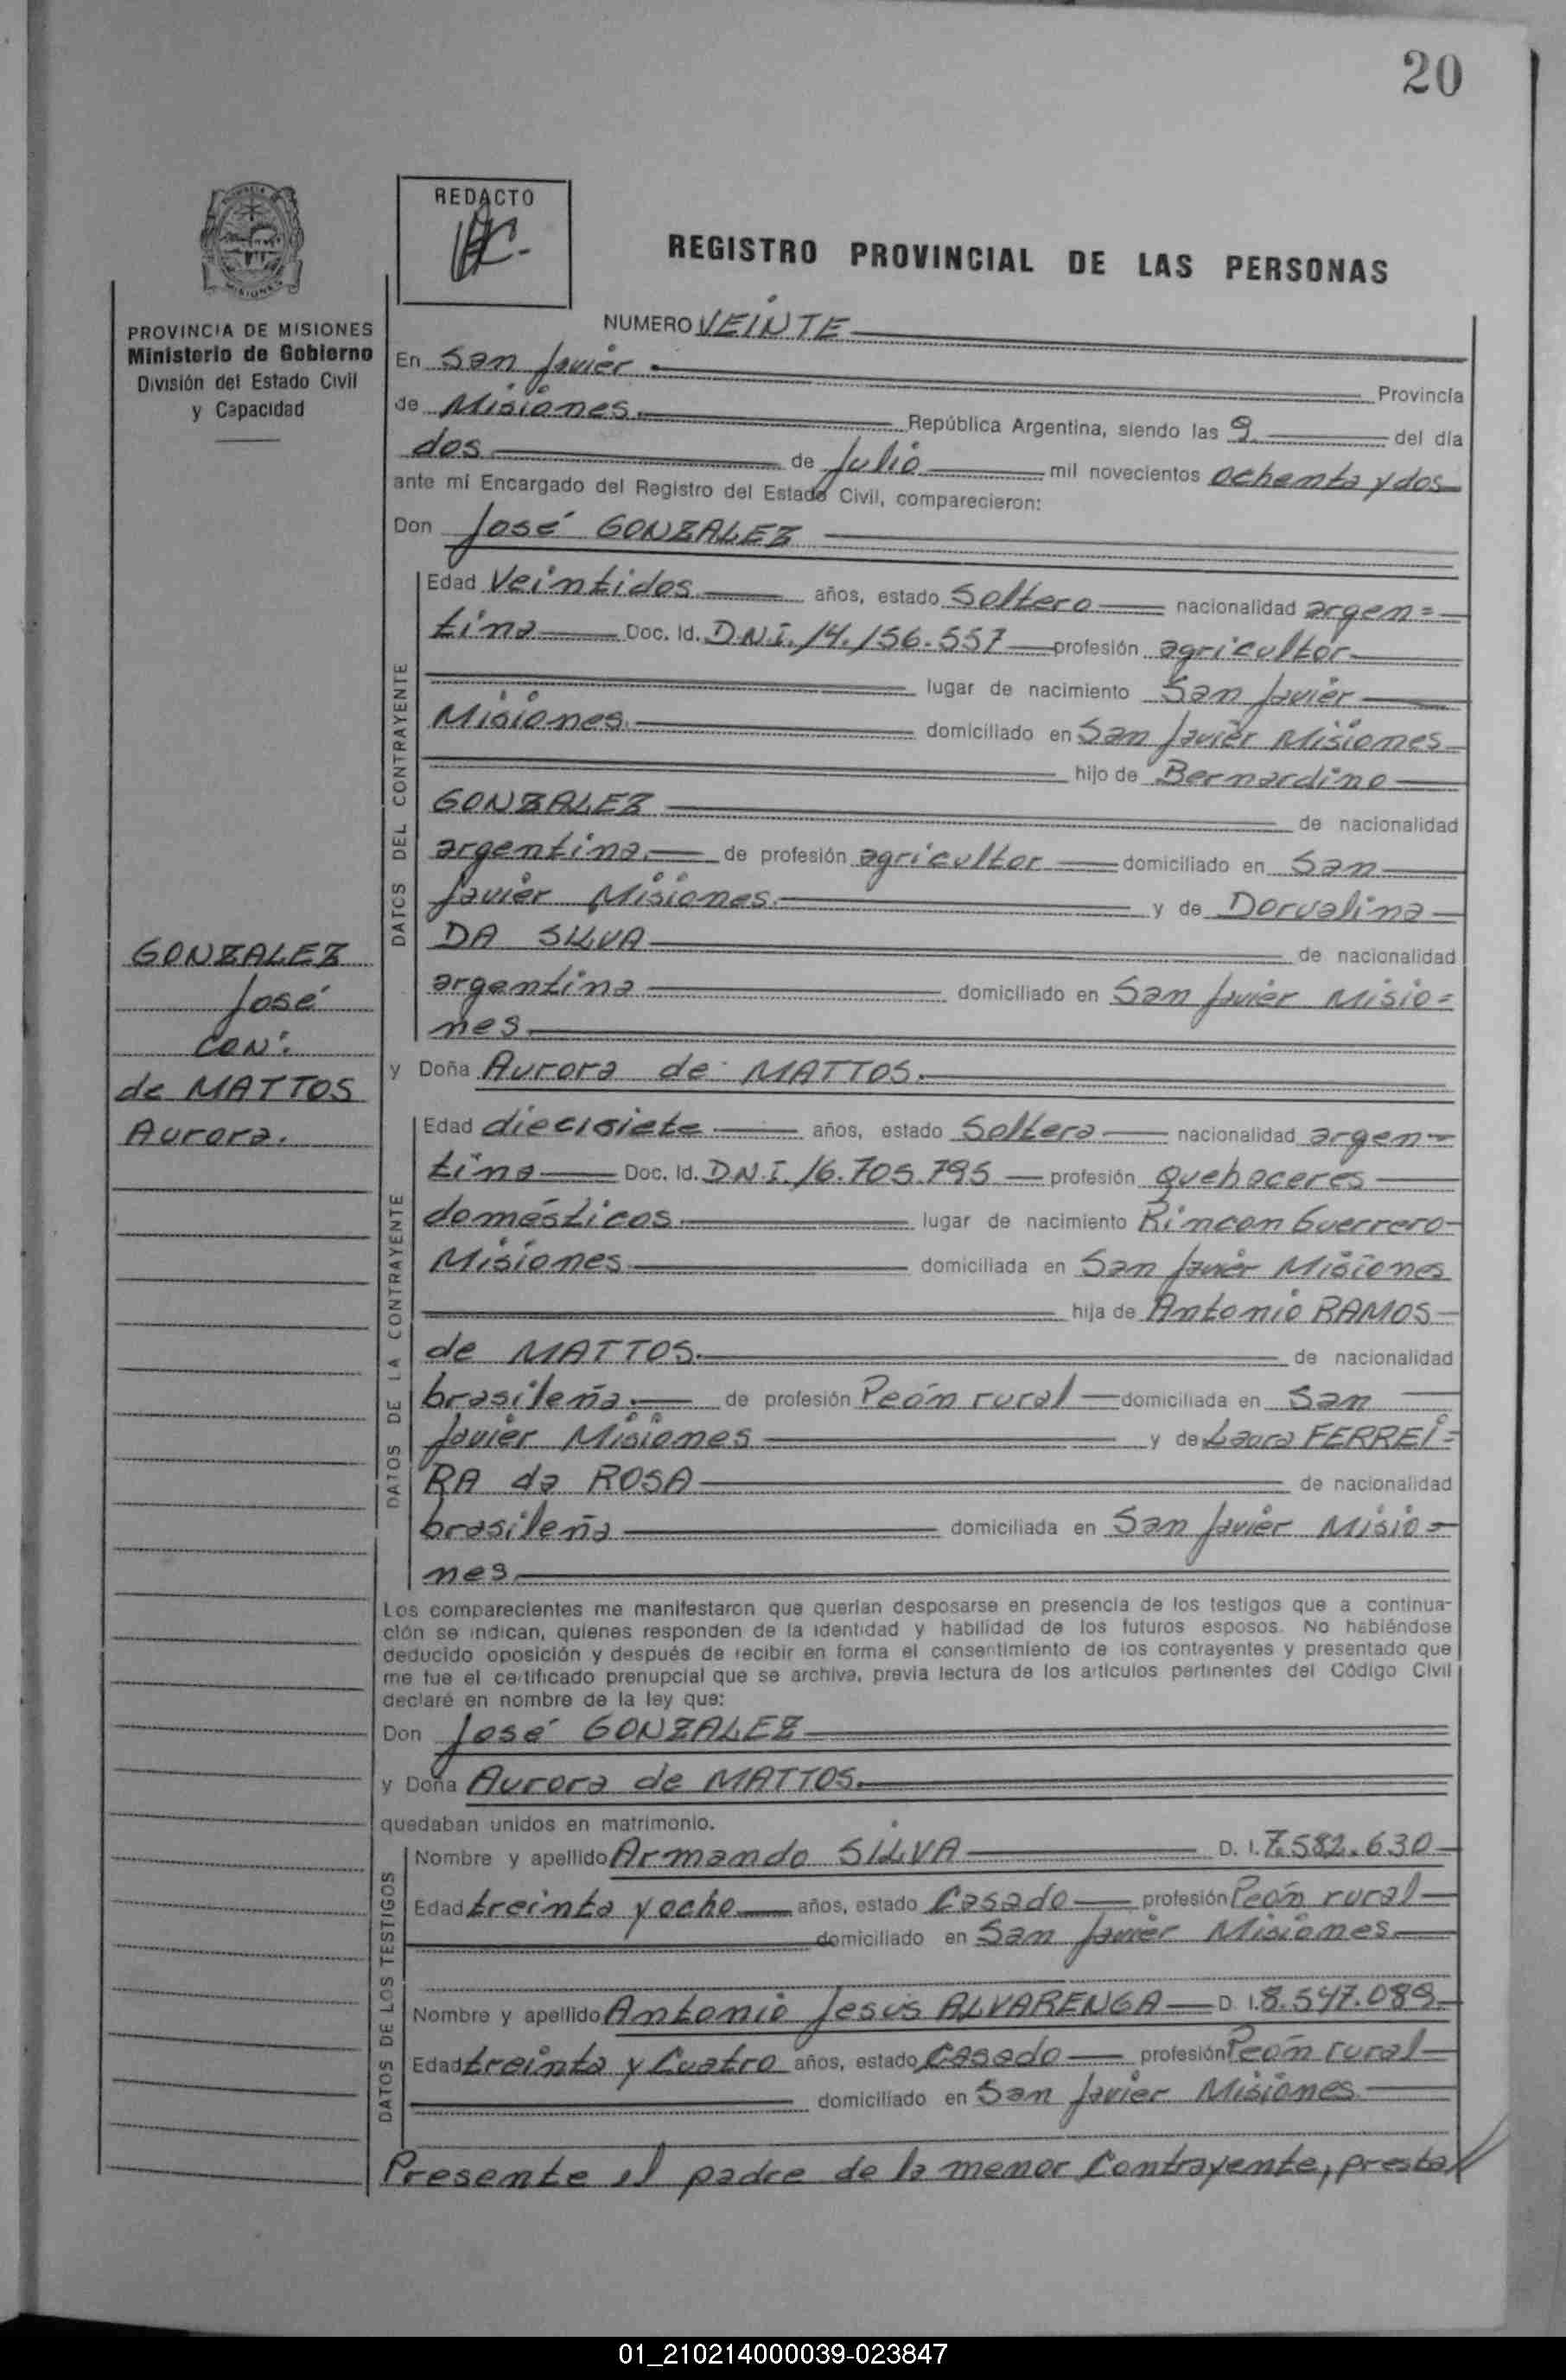 20
REDACTO
REGISTRO PROVINCIAL DE LAS PERSONAS
PROVINCIA DE MISIONES
Ministerio de Gobierno
División del Estado Civil
y Capacidad
NUMERO VEINTE
En San Javier Provincia
de Misiones República Argentina, siendo las 9 del día
dos de Julio mil novecientos ochenta y dos
ante mí Encargado del Registro del Estado Civil, comparecieron:
Don José GONZALEZ
DATOS DEL CONTRAYENTE
Edad Veintidos años, estado Soltero nacionalidad argen=
tina Doc. Id. D.N.I. 14.156.557 profesión agricultor
lugar de nacimiento San Javier
Misiones domiciliado en San Javier Misiones
hijo de Bernardino
GONZALEZ de nacionalidad
argentina de profesión agricultor domiciliado en San
Javier Misiones y de Dorvalina
DA SILVA de nacionalidad
argentina domiciliado en San Javier Misio=
nes
GONZALEZ
José
CON:
de MATTOS
Aurora.
y Doña Aurora de MATTOS.
DATOS DE LA CONTRAYENTE
Edad diecisiete años, estado Soltera nacionalidad argen=
tina Doc. Id. D.N.I. 16.705.795 profesión quehaceres
domésticos lugar de nacimiento Rincon Guerrero
Misiones domiciliada en San Javier Misiones
hija de Antonio RAMOS
de MATTOS. de nacionalidad
brasileña de profesión Peón rural domiciliada en San
Javier Misiones y de Laura FERREI=
RA da ROSA de nacionalidad
brasileña domiciliada en San Javier Misio=
nes
Los comparecientes me manifestaron que querían desposarse en presencia de los testigos que a continua-
ción se indican, quienes responden de la identidad y habilidad de los futuros esposos. No habiéndose
deducido oposición y después de recibir en forma el consentimiento de los contrayentes y presentado que
me fue el certificado prenupcial que se archiva, previa lectura de los artículos pertinentes del Código Civil
declaré en nombre de la ley que:
Don José GONZALEZ
y Doña Aurora de MATTOS.
quedaban unidos en matrimonio.
DATOS DE LOS TESTIGOS
Nombre y apellido Armando SILVA D. I. 7.582.630
Edad treinta y ocho años, estado Casado profesión Peón rural
domiciliado en San Javier Misiones
Nombre y apellido Antonio Jesús ALVARENGA D. I. 8.547.089
Edad treinta y Cuatro años, estado Casado profesión Peón rural
domiciliado en San Javier Misiones
Presente el padre de la menor Contrayente, presta
01_210214000039-023847